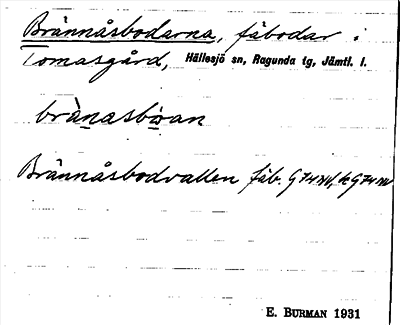 Brännåsbodarna, fäbodar i
Tomasgård, Hällesjö sn, Ragunda tg, Jämtl. l.
Brännåsbodvallen fäb.
E. BURMAN 1931